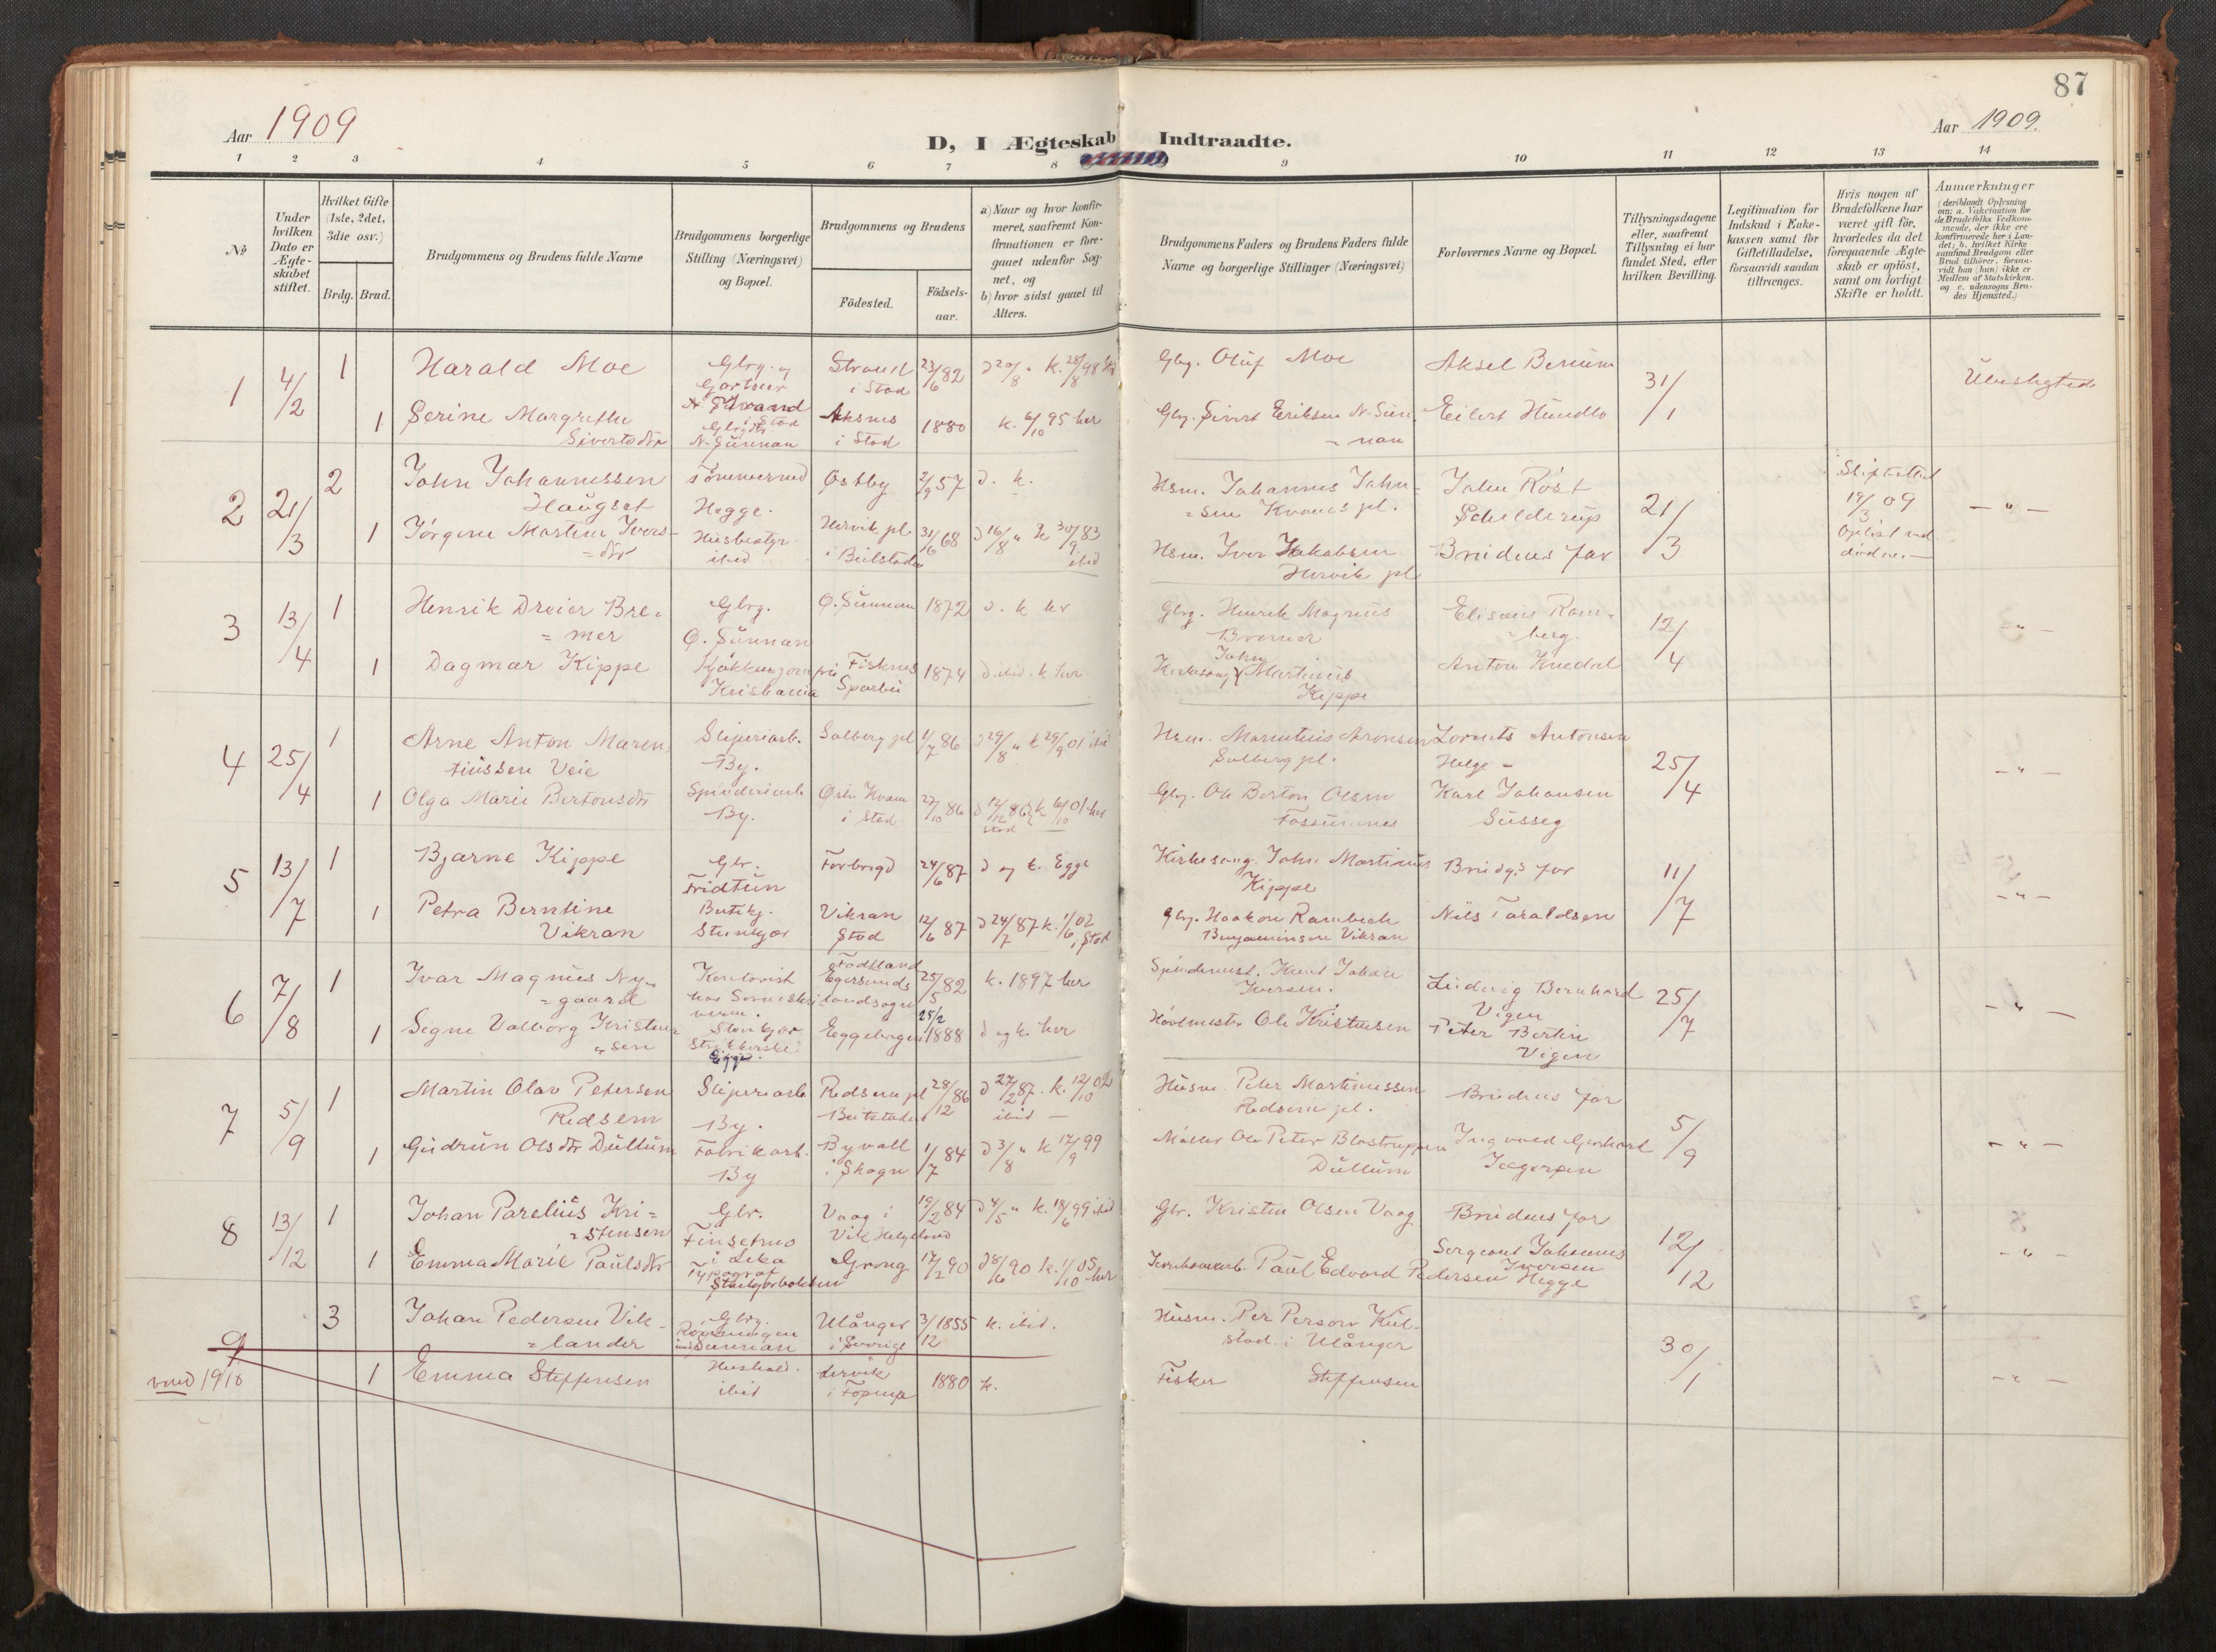 87
Aar 1909
D, I Ægteskab Indtraadte.
Aar 1909.
1 2 3 4 5 6 7 8 9 10 11 12 13 14
№
Under hvilken Dato er Ægteskabet stiftet.
Hvilket Gifte (1ste, 2det, 3die osv.)
Brdg. Brud.
Brudgommens og Brudens fulde Navne
Brudgommens borgerlige Stilling (Næringsvei) og Bopæl.
Brudgommens og Brudens
Födested.
Födsels-aar.
a) Naar og hvor konfirmeret, saafremt Konfirmationen er foregaaet udenfor Sognet, og
b) hvor sidst gaaet til Alters.
Brudgommens Faders og Brudens Faders fulde Navne og borgerlige Stillinger (Næringsvei)
Forlovernes Navne og Bopæl.
Tillysningsdagene eller, saafremt Tillysning ei har fundet Sted, efter hvilken Bevilling.
Legitimation for Indskud i Enkekassen samt for Giftetilladelse, forsaavidt saadan tiltrænges.
Hvis nogen af Brudefolkene har været gift för, hvorledes da det foregaaende Ægteskab er oplöst, samt om lovligt Skifte er holdt.
Anmærkninger (deriblandt Oplysning om: a. Vakcination for de Brudefolks Vedkommende, der ikke ere konfirmerede her i Landet; b. hvilket Kirkesamfund Brudgom eller Brud tilhörer, forsaavidt han (hun) ikke er Medlem af Statskirken, og c. udensogns Brudes Hjemsted.)
1 4/2 1 Harald Moe Gbrg. og Gartner N. Strand i Stod Strand i Stod 23/6 82 d 20/8 " k. 28/8 98 Gbrg. Oluf Moe Aksel Benum 31/1 Ubeslegtede
1 Serine Margrethe Sivertsdtr Gbrgdtr N. Sunnan Aksnes i Stod 1880 k. 6/10 95 her Gbrg. Sivert Eriksen N-Sun=nan Eilert Hundlo
2 21/3 2 John Johannessen Haugset Tömmermd Hegge. Østby 2/9 57 d. k. Hsm. Johannes John=sen Kvams pl. John Röst Schelderup 21/3 19/3 09 — " —
1 Jörgine Martine Ivers=dtr Husbestyr. ibid Hervik pl. i Beitstaden 31/6 68 d 16/8 " k 30/9 83 ibid Hsm. Iver Jakobsen Hervik pl Brudens far
3 13/4 1 Henrik Dreier Bre=mer Gbrg. Ø. Sunnan Ø. Sunnan 1872 d. k her Gbrg. Henrik Magnus Bremer Elisæus Ram=berg. 12/4 — " —
1 Dagmar Kippe Kjökkenjomfru Kristiania Fisknes Sparbu 1874 d. ibid. k her Kirkesang. John Martinus Kippe Anton Knedal
4 25/4 1 Arne Anton Maren=tiussen Veie Sliperiarb. By. Solberg pl 1/7 86 d 29/8 " k 29/9 01 ibid Hsm. Marentius Aronsen Solberg pl. Lorents Antonsen Helge 25/4 — " —
1 Olga Marie Bertonsdtr Spinderiarb By. Østr. Kvam i Stod 27/10 86 d 12/12 86 Stod k 6/10 01 her Gbrg. Ole Berton Olsen Fossumnes Karl Johansen Susseg
5 13/7 1 Bjarne Kippe Gbr. Fridtun Forbregd 24/6 87 d og k. Egge Kirkesang. John Martinus Kippe Brudg.s far 11/7 — " —
1 Petra Berntine Vikran Butikj. Stenkjær Vikran Stod 12/6 87 d 24/7 87 k. 1/6 02 i Stod Gbrg. Haakon Rambech Benjaminsen Vikran Nils Taraldsen
6 7/8 1 Ivar Magnus Ny=gaard Kontorist Stenkjær Fodtland Egersunds landsogn 25/5 82 k. 1897 her Spinderimest. Knut Johan Iversen. Ludvig Bernhard Vigen 25/7 — " —
1 Signe Valborg Kristen=sen Strikkerske Egge. Eggebogen 25/2 1888 d og k. her Hövlmester Ole Kristensen Peter Bertin Vigen
7 5/9 1 Martin Olav Petersen Redsem Sliperiarb By. Redsem pl Beitstaden 28/12 86 d 27/2 87. k. 12/10 02 ibid — Husm. Peter Martinussen Redsem pl. Brudens far 5/9 — " —
1 Gudrun Olsdtr Dullum Fabrikarb. By Byvald i Skogn 1/7 84 d 3/8 " k 17/9 99 Möller Ole Peter Dullum Ingvald Gerhard
8 13/12 1 Johan Parelius Kri=stensen Gbr. Finsetmo i Leka Vaag i Vik Helgeland 19/2 84 d 4/5 " k. 18/6 99 ibid Gbr. Kristen Olsen Vaag Brudens far 12/12 — " —
1 Emma Marie Paulsdtr Typograf Grong 17/2 90 d 8/6 90 k. 1/10 05 her Jernbanearb. Paul Edvard Pedersen Sergeant Johannes Iversen Hegge
9 3 Johan Pedersen Vik=lander Gbrg. Sunnan Ulånger i Sverige 3/12 1855 k. ibid. Husm. Per Person Kul=stad i Ulånger 30/1 — " —
1910 1 Emma Steffensen Hushold. ibid Lervik i Fosnes 1880 k. Fisker Steffensen